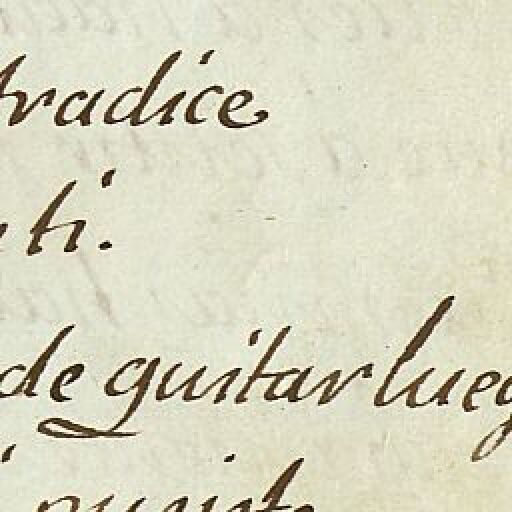 tradice
ti.
de guitar lueg